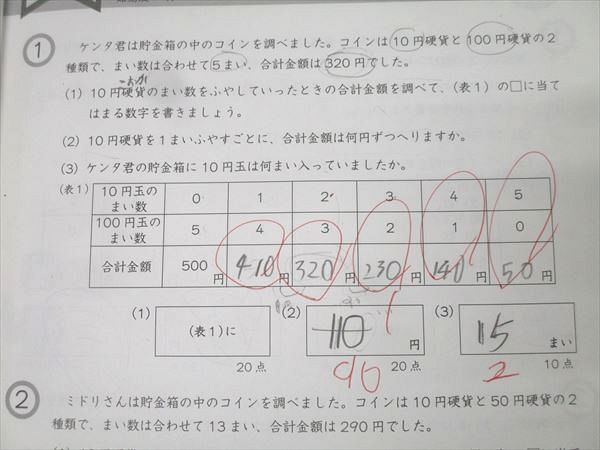 1 ケンタ君は貯金箱の中のコインを調べました。コインは10円硬貨と100円硬貨の2
種類で、まい数は合わせて5まい、合計金額は320円でした。
(1) 10円硬貨のまい数をふやしていったときの合計金額を調べて、(表1)の□に当て
はまる数字を書きましょう。
(2) 10円硬貨を1まいふやすごとに、合計金額は何円ずつへりますか。
(3) ケンタ君の貯金箱に10円玉は何まい入っていましたか。
(表1) 10円玉のまい数 0 1 2 3 4 5
100円玉のまい数 5 4 3 2 1 0
合計金額 500円 410円 320円 230円 140円 50円
(1) (表1)に (2) 110 円 (3) 15 まい
20点 90 20点 2 10点
2 ミドリさんは貯金箱の中のコインを調べました。コインは10円硬貨と50円硬貨の2
種類で、まい数は合わせて13まい、合計金額は290円でした。